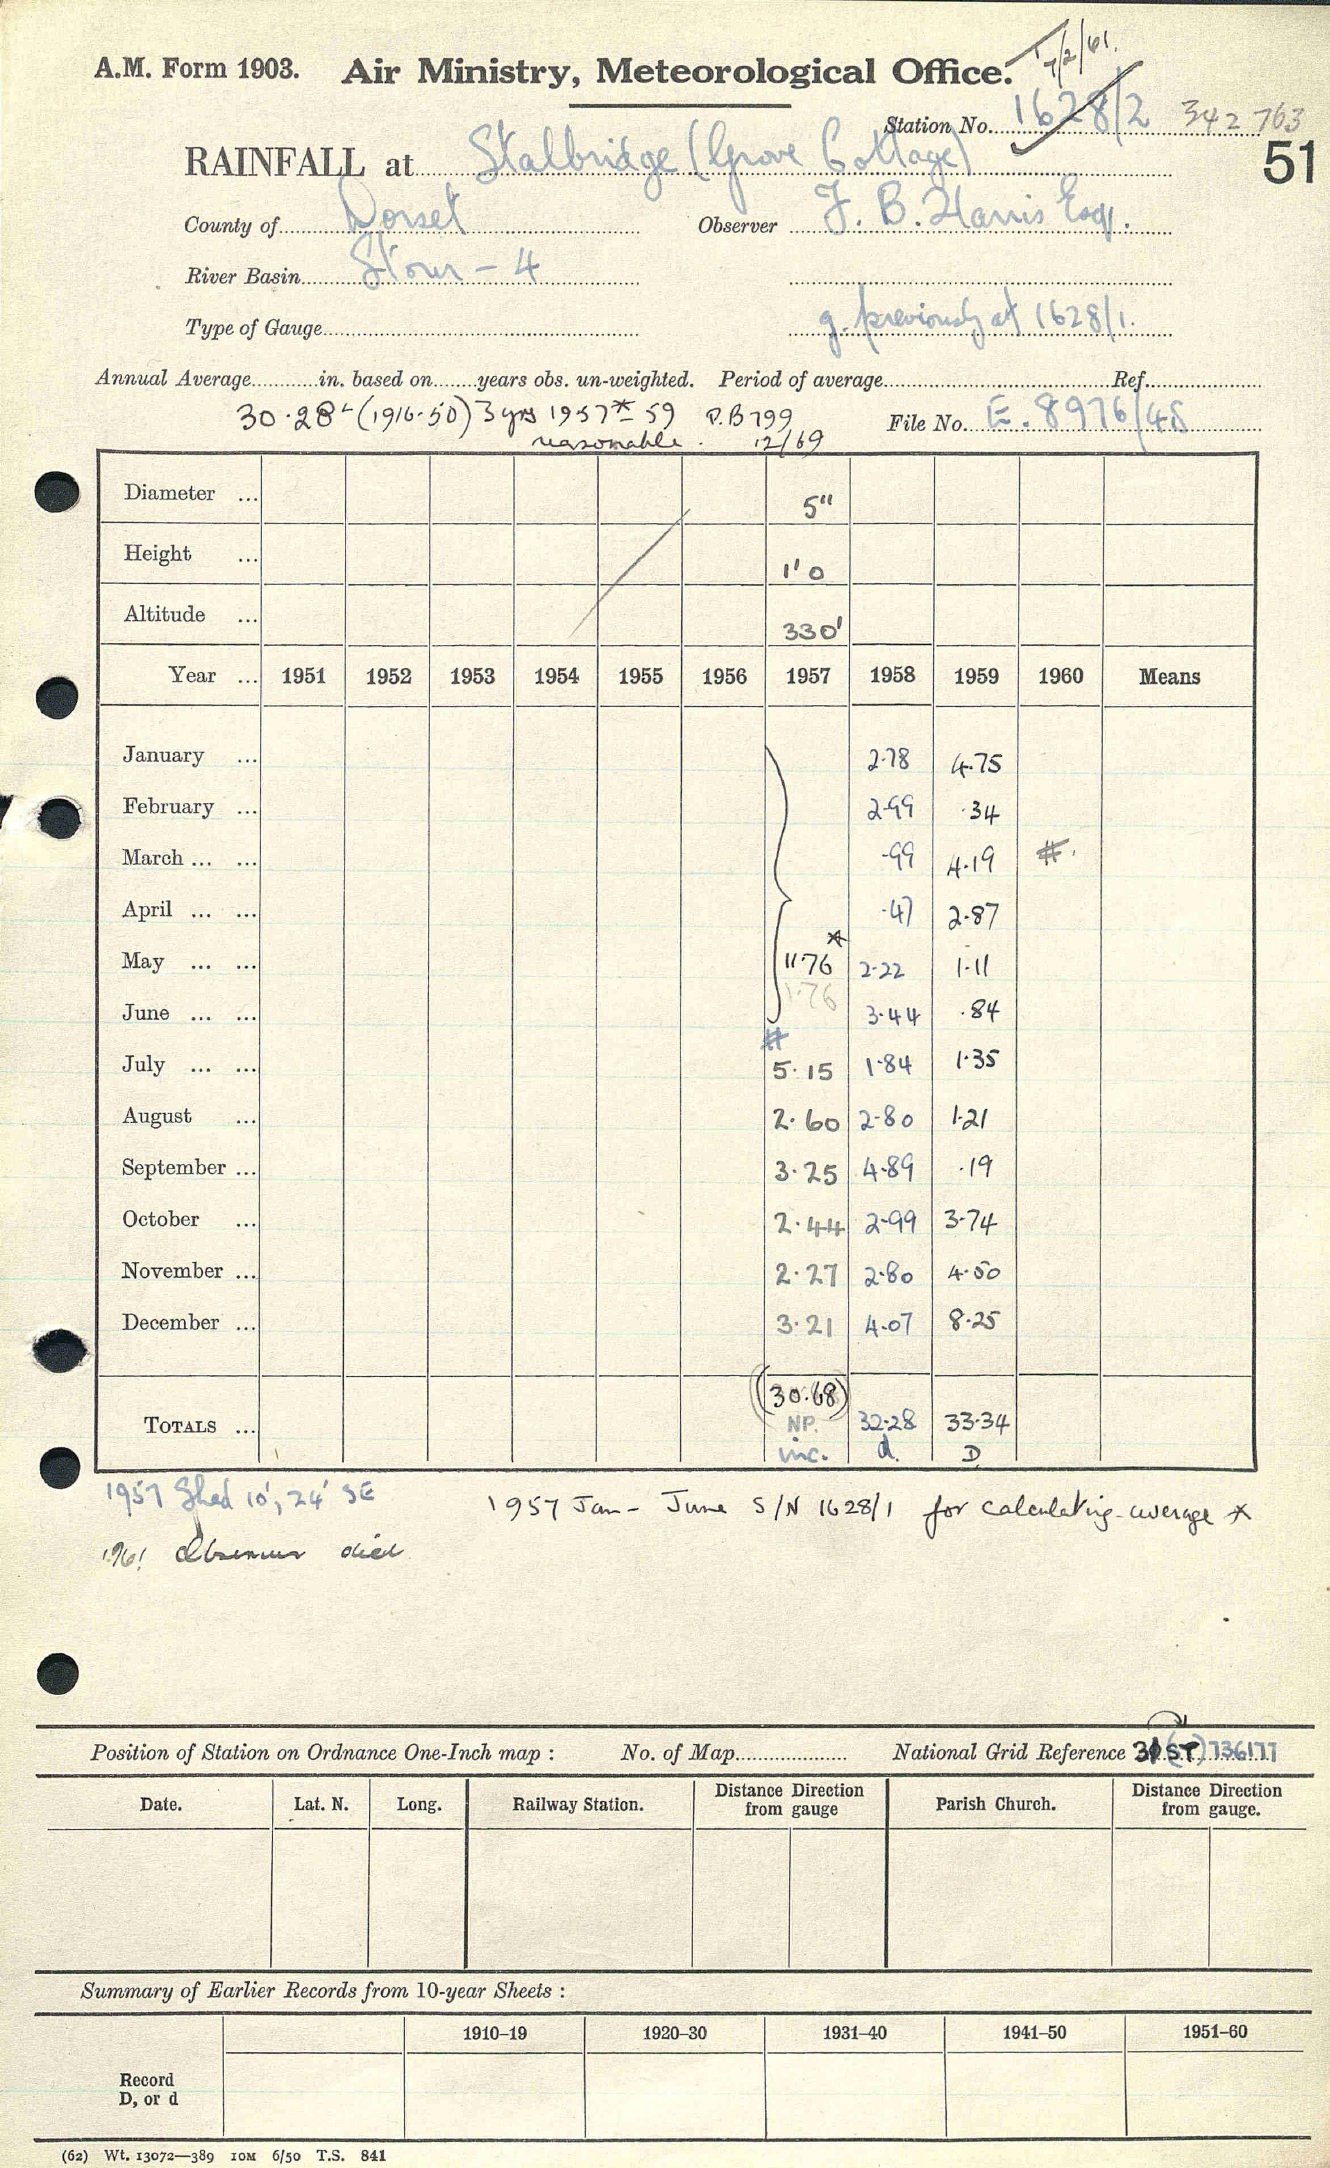 7/2/61.
A.M. Form 1903. Air Ministry, Meteorological Office.
Station No. 1628/2 342763
51
RAINFALL at Stalbridge (Grove Cottage)
County of Dorset Observer F. B. Harris Esq.
River Basin Stour - 4
Type of Gauge g. previously at 1628/1.
Annual Average in. based on years obs. un-weighted. Period of average Ref.
30.28 (1916-50) 3 yrs 1957*- 59 P.B 799 File No. E. 8976/48
reasonable. 12/69
Diameter ... 5"
Height ... 1' 0
Altitude ... 330'
Year ... 1951 1952 1953 1954 1955 1956 1957 1958 1959 1960 Means
January ... 2.78 4.75
February ... 2.99 .34
March ... ... .99 4.19 #.
April ... ... .47 2.87
*
May ... ... 11.76 2.22 1.11
1.76
June ... ... 3.44 .84
#
July ... ... 5.15 1.84 1.35
August ... 2.60 2.80 1.21
September ... 3.25 4.89 .19
October ... 2.44 2.99 3.74
November ... 2.27 2.80 4.50
December ... 3.21 4.07 8.25
(30.68)
TOTALS ... NP. 32.28 33.34
inc. d. D
1957 Shed 10', 24' SE
1957 Jan - June S/N 1628/1 for calculating average *
1961 Observer died
Position of Station on Ordnance One-Inch map : No. of Map National Grid Reference 31 (ST) 736177
Date. Lat. N. Long. Railway Station. Distance Direction from gauge Parish Church. Distance Direction from gauge.
Summary of Earlier Records from 10-year Sheets :
1910–19 1920–30 1931–40 1941–50 1951–60
Record
D, or d
(62) Wt. 13072—389 10M 6/50 T.S. 841